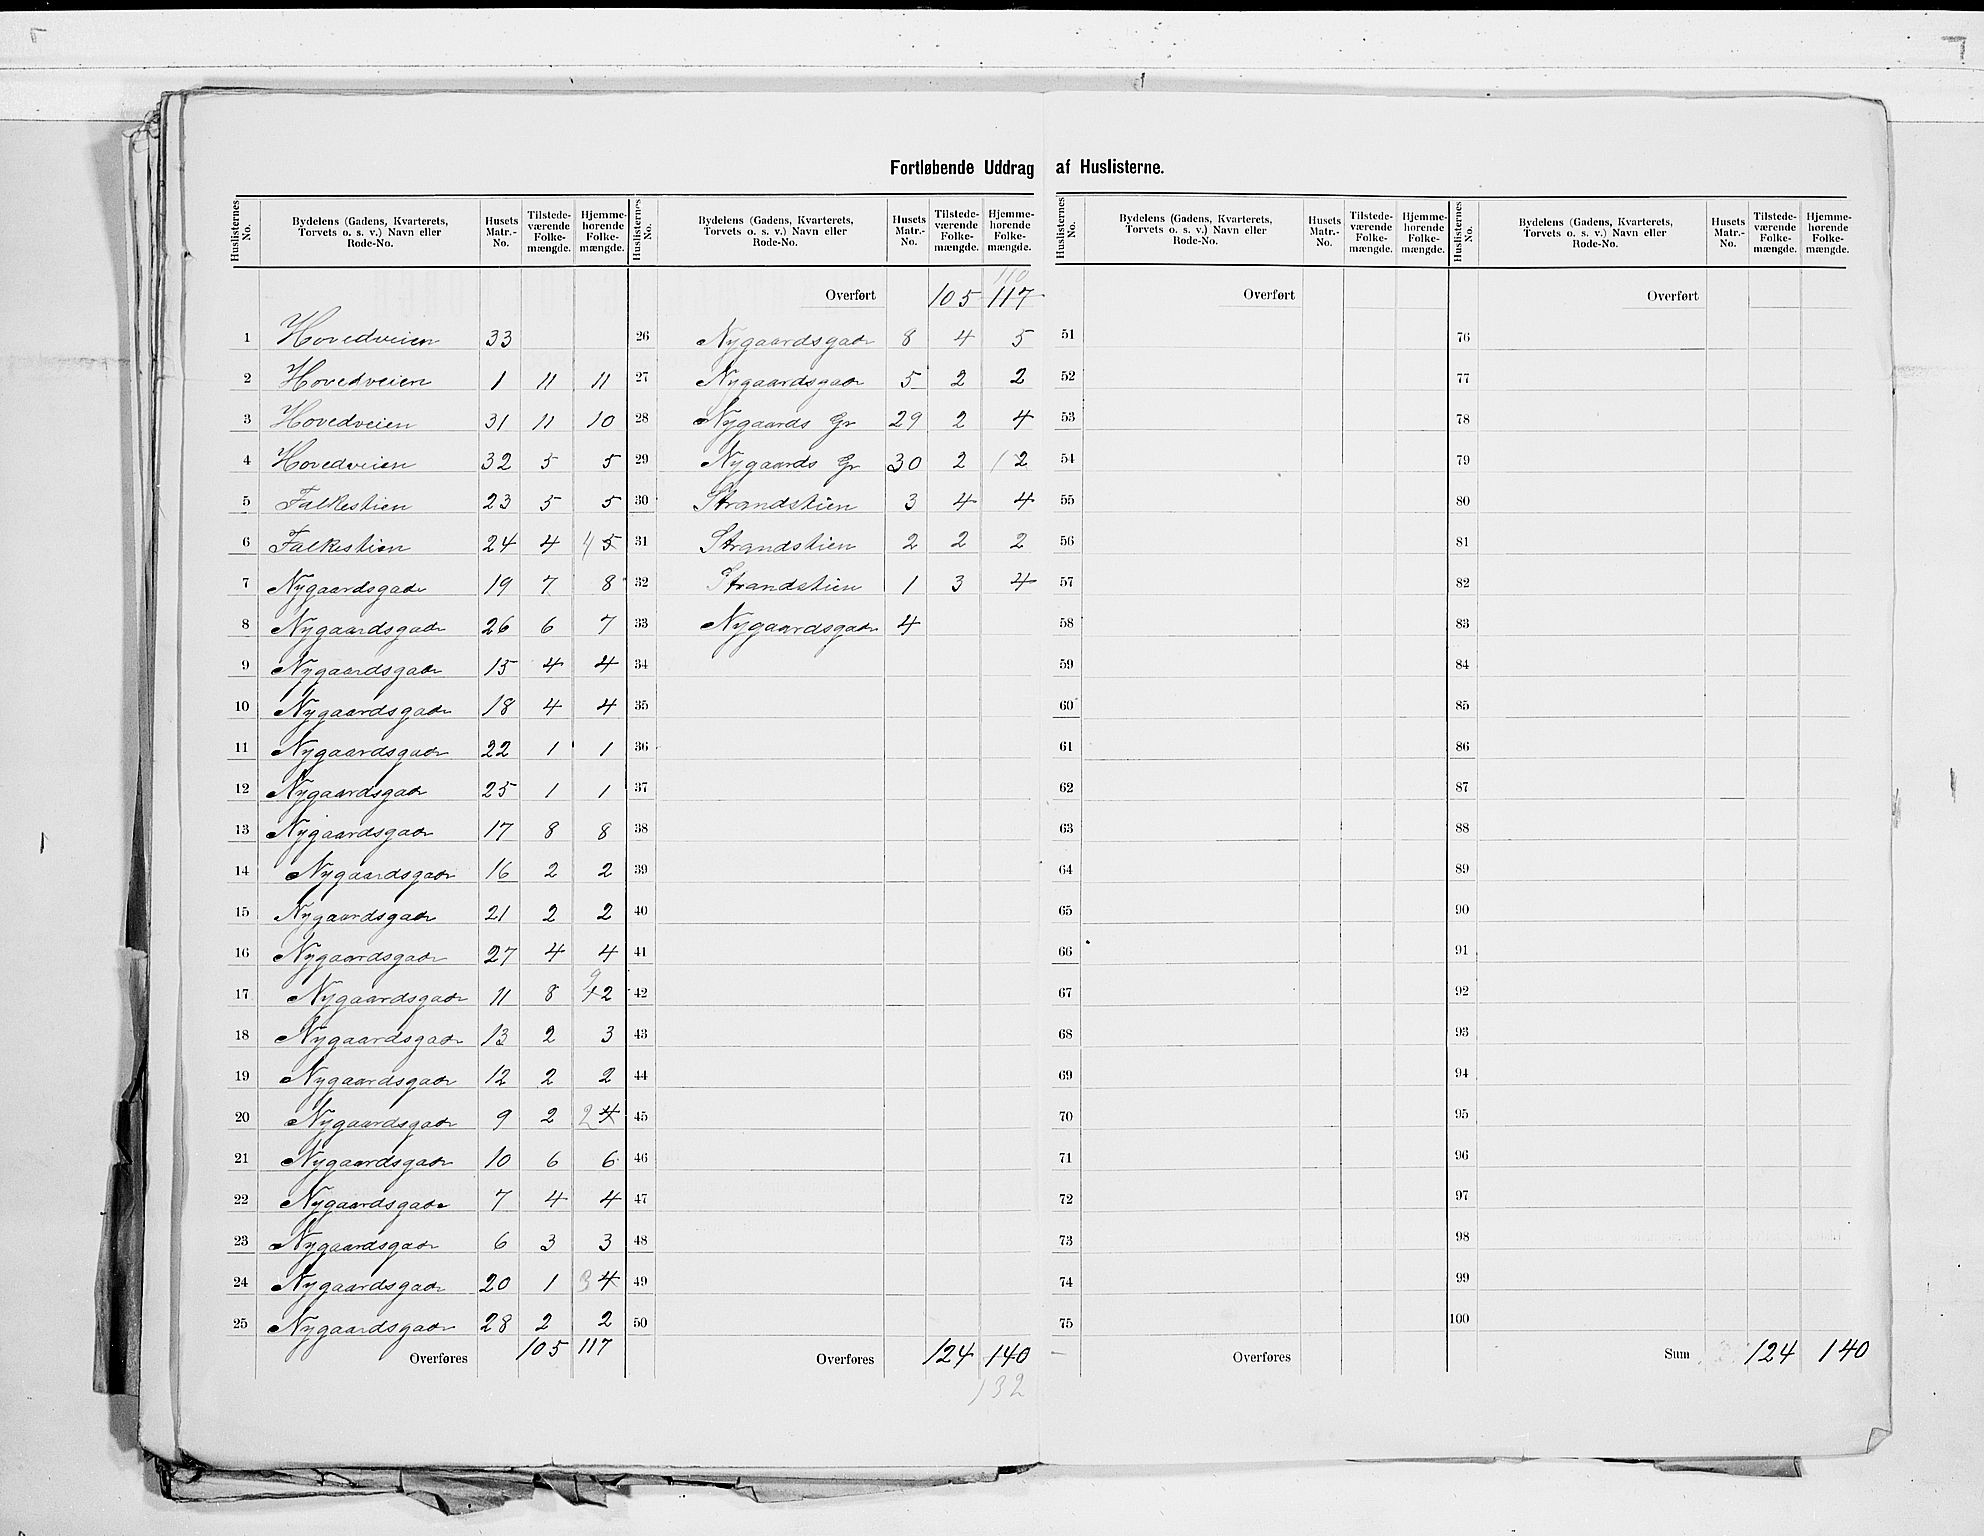 Fortløbende Uddrag af Huslisterne.
Huslisternes No. Bydelens (Gadens, Kvarterets, Torvets o. s. v.) Navn eller Rode-No. Husets Matr.-No. Tilstede-værende Folke-mængde. Hjemme-hørende Folke-mængde.
1 Hovedveien 33
2 Hovedveien 1 11 11
3 Hovedveien 31 11 10
4 Hovedveien 32 5 5
5 Falkestien 23 5 5
6 Falkestien 24 4 4 5
7 Nygaardsgade 19 7 8
8 Nygaardsgade 26 6 7
9 Nygaardsgade 15 4 4
10 Nygaardsgade 18 4 4
11 Nygaardsgade 22 1 1
12 Nygaardsgade 25 1 1
13 Nygaardsgade 17 8 8
14 Nygaardsgade 16 2 2
15 Nygaardsgade 21 2 2
16 Nygaardsgade 27 4 4
9
17 Nygaardsgade 11 8 12
18 Nygaardsgade 13 2 3
19 Nygaardsgade 12 2 2
20 Nygaardsgade 9 2 2 4
21 Nygaardsgade 10 6 6
22 Nygaardsgade 7 4 4
23 Nygaardsgade 6 3 3
24 Nygaardsgade 20 1 3 4
25 Nygaardsgade 28 2 2
Overføres 105 117
Huslisternes No. Bydelens (Gadens, Kvarterets, Torvets o. s. v.) Navn eller Rode-No. Husets Matr.-No. Tilstede-værende Folke-mængde. Hjemme-hørende Folke-mængde.
110
Overført 105 117
26 Nygaardsgade 8 4 5
27 Nygaardsgade 5 2 2
28 Nygaards Gr 29 2 4
29 Nygaards Gr 30 2 2
30 Strandstien 3 4 4
31 Strandstien 2 2 2
32 Strandstien 1 3 4
33 Nygaardsgade 4
34
35
36
37
38
39
40
41
42
43
44
45
46
47
48
49
50
Overføres 124 140
132
Huslisternes No. Bydelens (Gadens, Kvarterets, Torvets o. s. v.) Navn eller Rode-No. Husets Matr.-No. Tilstede-værende Folke-mængde. Hjemme-hørende Folke-mængde.
Overført
51
52
53
54
55
56
57
58
59
60
61
62
63
64
65
66
67
68
69
70
71
72
73
74
75
Overføres
Huslisternes No. Bydelens (Gadens, Kvarterets, Torvets o. s. v.) Navn eller Rode-No. Husets Matr.-No. Tilstede-værende Folke-mængde. Hjemme-hørende Folke-mængde.
Overført
76
77
78
79
80
81
82
83
84
85
86
87
88
89
90
91
92
93
94
95
96
97
98
99
100
Sum 124 140